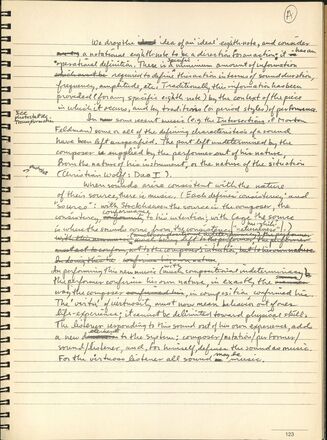 A
We drop the idea of an ideal eighth note, and consider
a notational eighth note to be a direction to action; it has an
operational definition. There is a minimum amount of specific information
required to define this action in terms of sound duration,
frequency, amplitude, etc. Traditionally, this information has been
provided (for any specific eighth note) by the context of the piece
in which it occurs, and by traditions (or period styles) of performance.
In some recent music (e.g. the Intersections of Morton
Feldman) some or all of the defining characteristics of a sound
have been left unspecified. The part left undetermined by the
composer is supplied by the performer out of his nature,
from the nature of his instrument, or the nature of the situation
(Christian Wolff: Duo I).
When sounds arise consistent with the nature
of their source, there is music. (Each defines consistency and
"source": with Stockhausen the source is the composer, the
consistency, conformance to his intention; with Cage the source
is where the sounds come from, the consistency,
In performing this new music (music compositionally indeterminate),
the performer confirms his own nature, in exactly the
way the composer in composition, confirmed his.
The 'virtu' of virtuosity must now mean behavior out of one's
life-experience; it cannot be delimited toward physical skill.
The listener responding to this sound out of his own experience, adds
a new element to the system: composer/notation/performer/
sound/listener, and, for himself, defines the sound as music.
For the virtuoso listener all sound may be music.
123